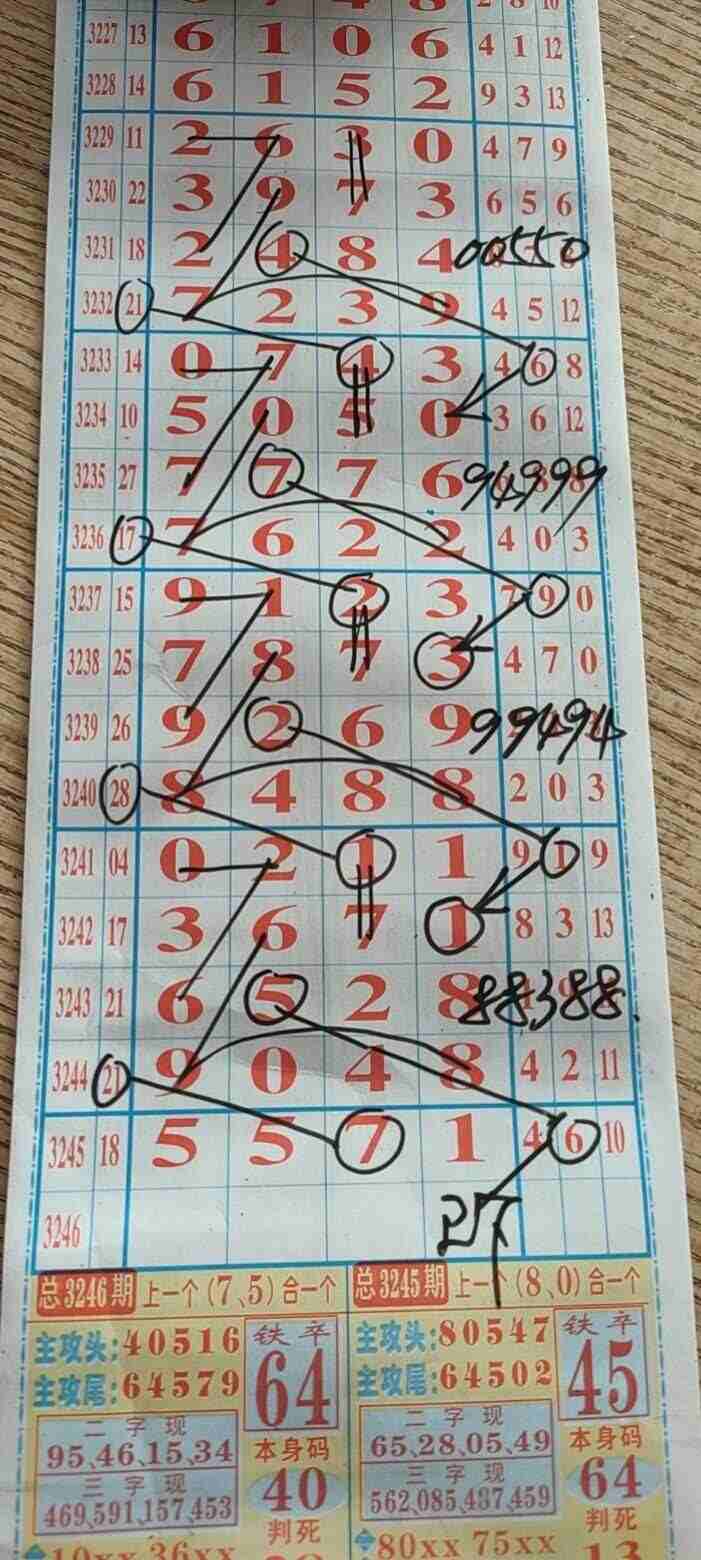 3227 13 6 1 0 6 4 1 12
3228 14 6 1 5 2 9 3 13
3229 11 2 6 3 0 4 7 9
3230 22 3 9 7 3 6 5 6
3231 18 2 4 8 4 00550
3232 21 7 2 3 9 4 5 12
3233 14 0 7 4 3 4 6 8
3234 10 5 0 5 0 3 6 12
3235 27 7 7 7 6 94999
3236 17 7 6 2 2 4 0 3
3237 15 9 1 2 3 7 9 0
3238 25 7 8 7 3 4 7 0
3239 26 9 2 6 9 99494
3240 28 8 4 8 8 2 0 3
3241 04 0 2 1 1 9 1 9
3242 17 3 6 7 1 8 3 13
3243 21 6 5 2 8 88388.
3244 21 9 0 4 8 4 2 11
3245 18 5 5 7 1 4 6 10
3246
总3246期 上一个(7、5)合一个
主攻头:40516
主攻尾:64579
铁卒
64
二字现
95、46、15、34
三字现
469、591、157、453
本身码
40
判死
10xx 36xx
总3245期 上一个(8、0)合一个
主攻头:80547
主攻尾:64502
铁卒
45
二字现
65、28、05、49
三字现
562、085、437、459
本身码
64
判死
80xx 75xx